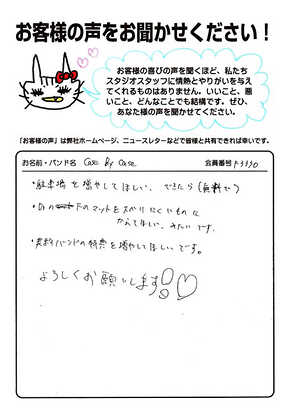 お客様の声をお聞かせください！
お客様の喜びの声を聞くほど、私たち
スタジオスタッフに情熱とやりがいを与え
てくれるものはありません。いいこと、悪
いこと、どんなことでも結構です。ぜひ、
あなた様の声を聞かせてください。
「お客様の声」は弊社ホームページ、ニュースレターなどで皆様と共有できれば幸いです。
お名前・バンド名 Case By Case 会員番号
・駐車場を増やしてほしい。できたら(無料で)
・Drの下のマットをすべりにくいものに
かえてほしい、みたいです。
・契約バンドの特典を増やしてほしいです。
よろしくお願いします!!